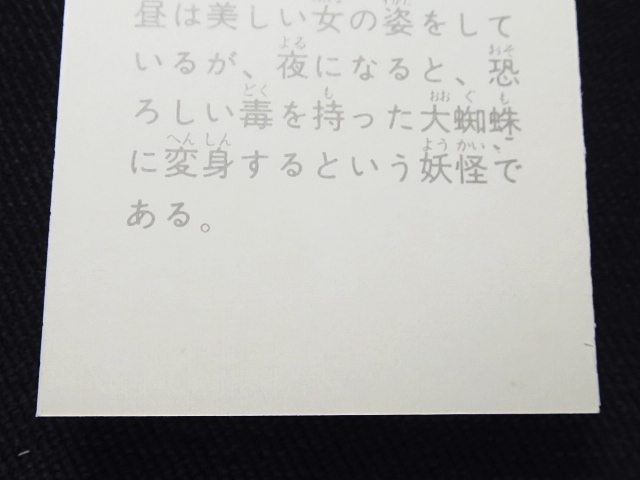 昼は美しい女の姿をして
いるが、夜になると、恐
ろしい毒を持った大蜘蛛
に変身するという妖怪で
ある。